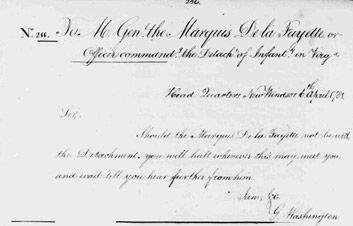 286.
No. 211. To M. Genl. the Marquis De la Fayette or
Officer commandg. the Detacht. of Infanty. in Virga.
Head Quarters New Windsor 6th. April 1781
Sir,
Should the Marquis De la Fayette not be with
the Detachment, you will halt wherever this may meet you
and wait till you hear further from him.
I am &c
G. Washington